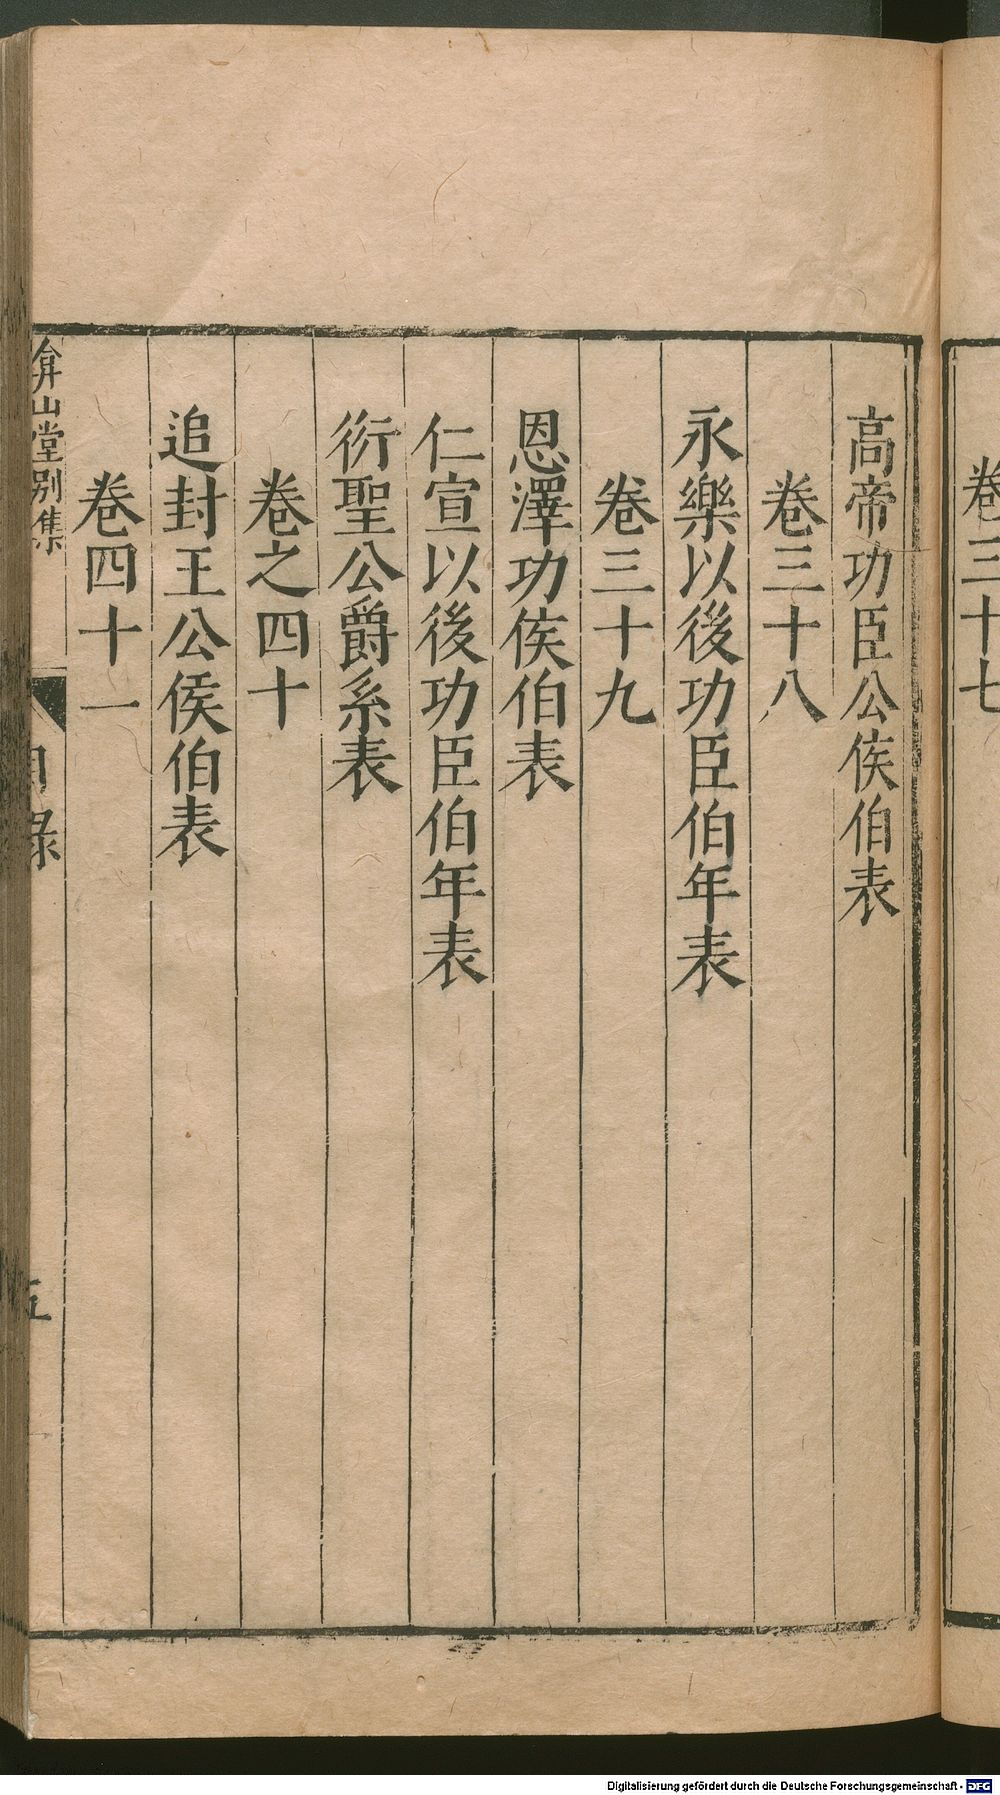 卷三十七
高帝功臣公侯伯表
卷三十八
永樂以後功臣伯年表
卷三十九
恩澤功侯伯表
仁宣以後功臣伯年表
衍聖公爵系表
卷之四十
追封王公侯伯表
卷四十一
弇山堂別集
目錄
五
Digitalisierung gefördert durch die Deutsche Forschungsgemeinschaft - DFG